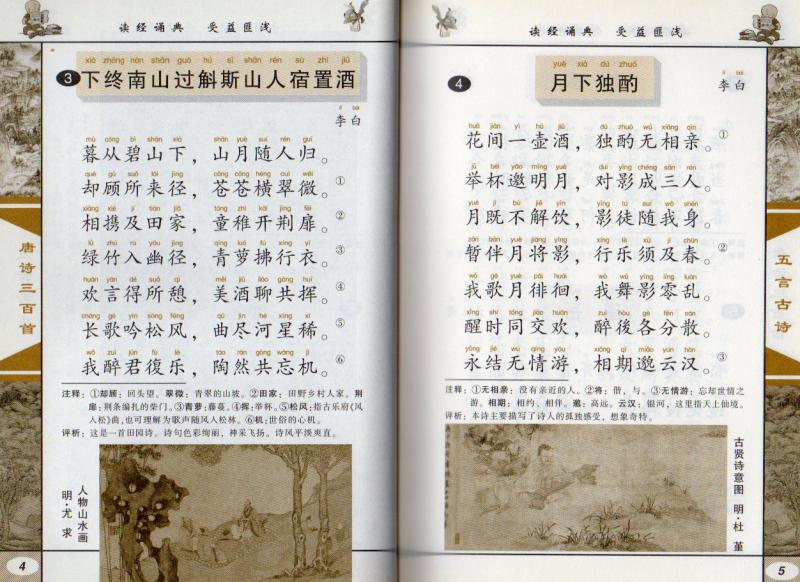 读经诵典 受益匪浅
xià zhōng nán shān guò hú sī shān rén sù zhì jiǔ
③下终南山过斛斯山人宿置酒
lǐ bái
李白
mù cóng bì shān xià shān yuè suí rén guī
暮从碧山下，山月随人归。
què gù suǒ lái jìng cāng cāng héng cuì wēi
却顾所来径，苍苍横翠微。①
xiāng xié jí tián jiā tóng zhì kāi jīng fēi
相携及田家，童稚开荆扉。②
lǜ zhú rù yōu jìng qīng luó fú xíng yī
绿竹入幽径，青萝拂行衣。③
huān yán dé suǒ qì měi jiǔ liáo gòng huī
欢言得所憩，美酒聊共挥。④
cháng gē yín sōng fēng qǔ jìn hé xīng xī
长歌吟松风，曲尽河星稀。⑤
wǒ zuì jūn fù lè táo rán gòng wàng jī
我醉君復乐，陶然共忘机。⑥
注释：①却顾：回头望。翠微：青翠的山坡。②田家：田野乡村人家。荆
扉：荆条编扎的柴门。③青萝：藤蔓。④挥：举杯。⑤松风：指古乐府《风
入松》曲，也可理解为歌声随风入松林。⑥机：世俗的心机。
评析：这是一首田园诗。诗句色彩绚丽，神采飞扬。诗风平淡爽直。
人物山水画
明·尤求
唐诗三百首
4
读经诵典 受益匪浅
yuè xià dú zhuó
④月下独酌
lǐ bái
李白
huā jiān yì hú jiǔ dú zhuó wú xiāng qīn
花间一壶酒，独酌无相亲。①
jǔ bēi yāo míng yuè duì yǐng chéng sān rén
举杯邀明月，对影成三人。
yuè jì bù jiě yǐn yǐng tú suí wǒ shēn
月既不解饮，影徒随我身。
zàn bàn yuè jiāng yǐng xíng lè xū jí chūn
暂伴月将影，行乐须及春。②
wǒ gē yuè pái huái wǒ wǔ yǐng líng luàn
我歌月徘徊，我舞影零乱。
xǐng shí tóng jiāo huān zuì hòu gè fēn sàn
醒时同交欢，醉後各分散。
yǒng jié wú qíng yóu xiāng qī miǎo yún hàn
永结无情游，相期邈云汉。③
注释：①无相亲：没有亲近的人。②将：偕，与。③无情游：忘却世情之
游。相期：相约、相伴。邈：高远。云汉：银河，这里指天上仙境。
评析：本诗主要描写了诗人的孤独感受，想象奇特。
古贤诗意图 明·杜堇
五言古诗
5